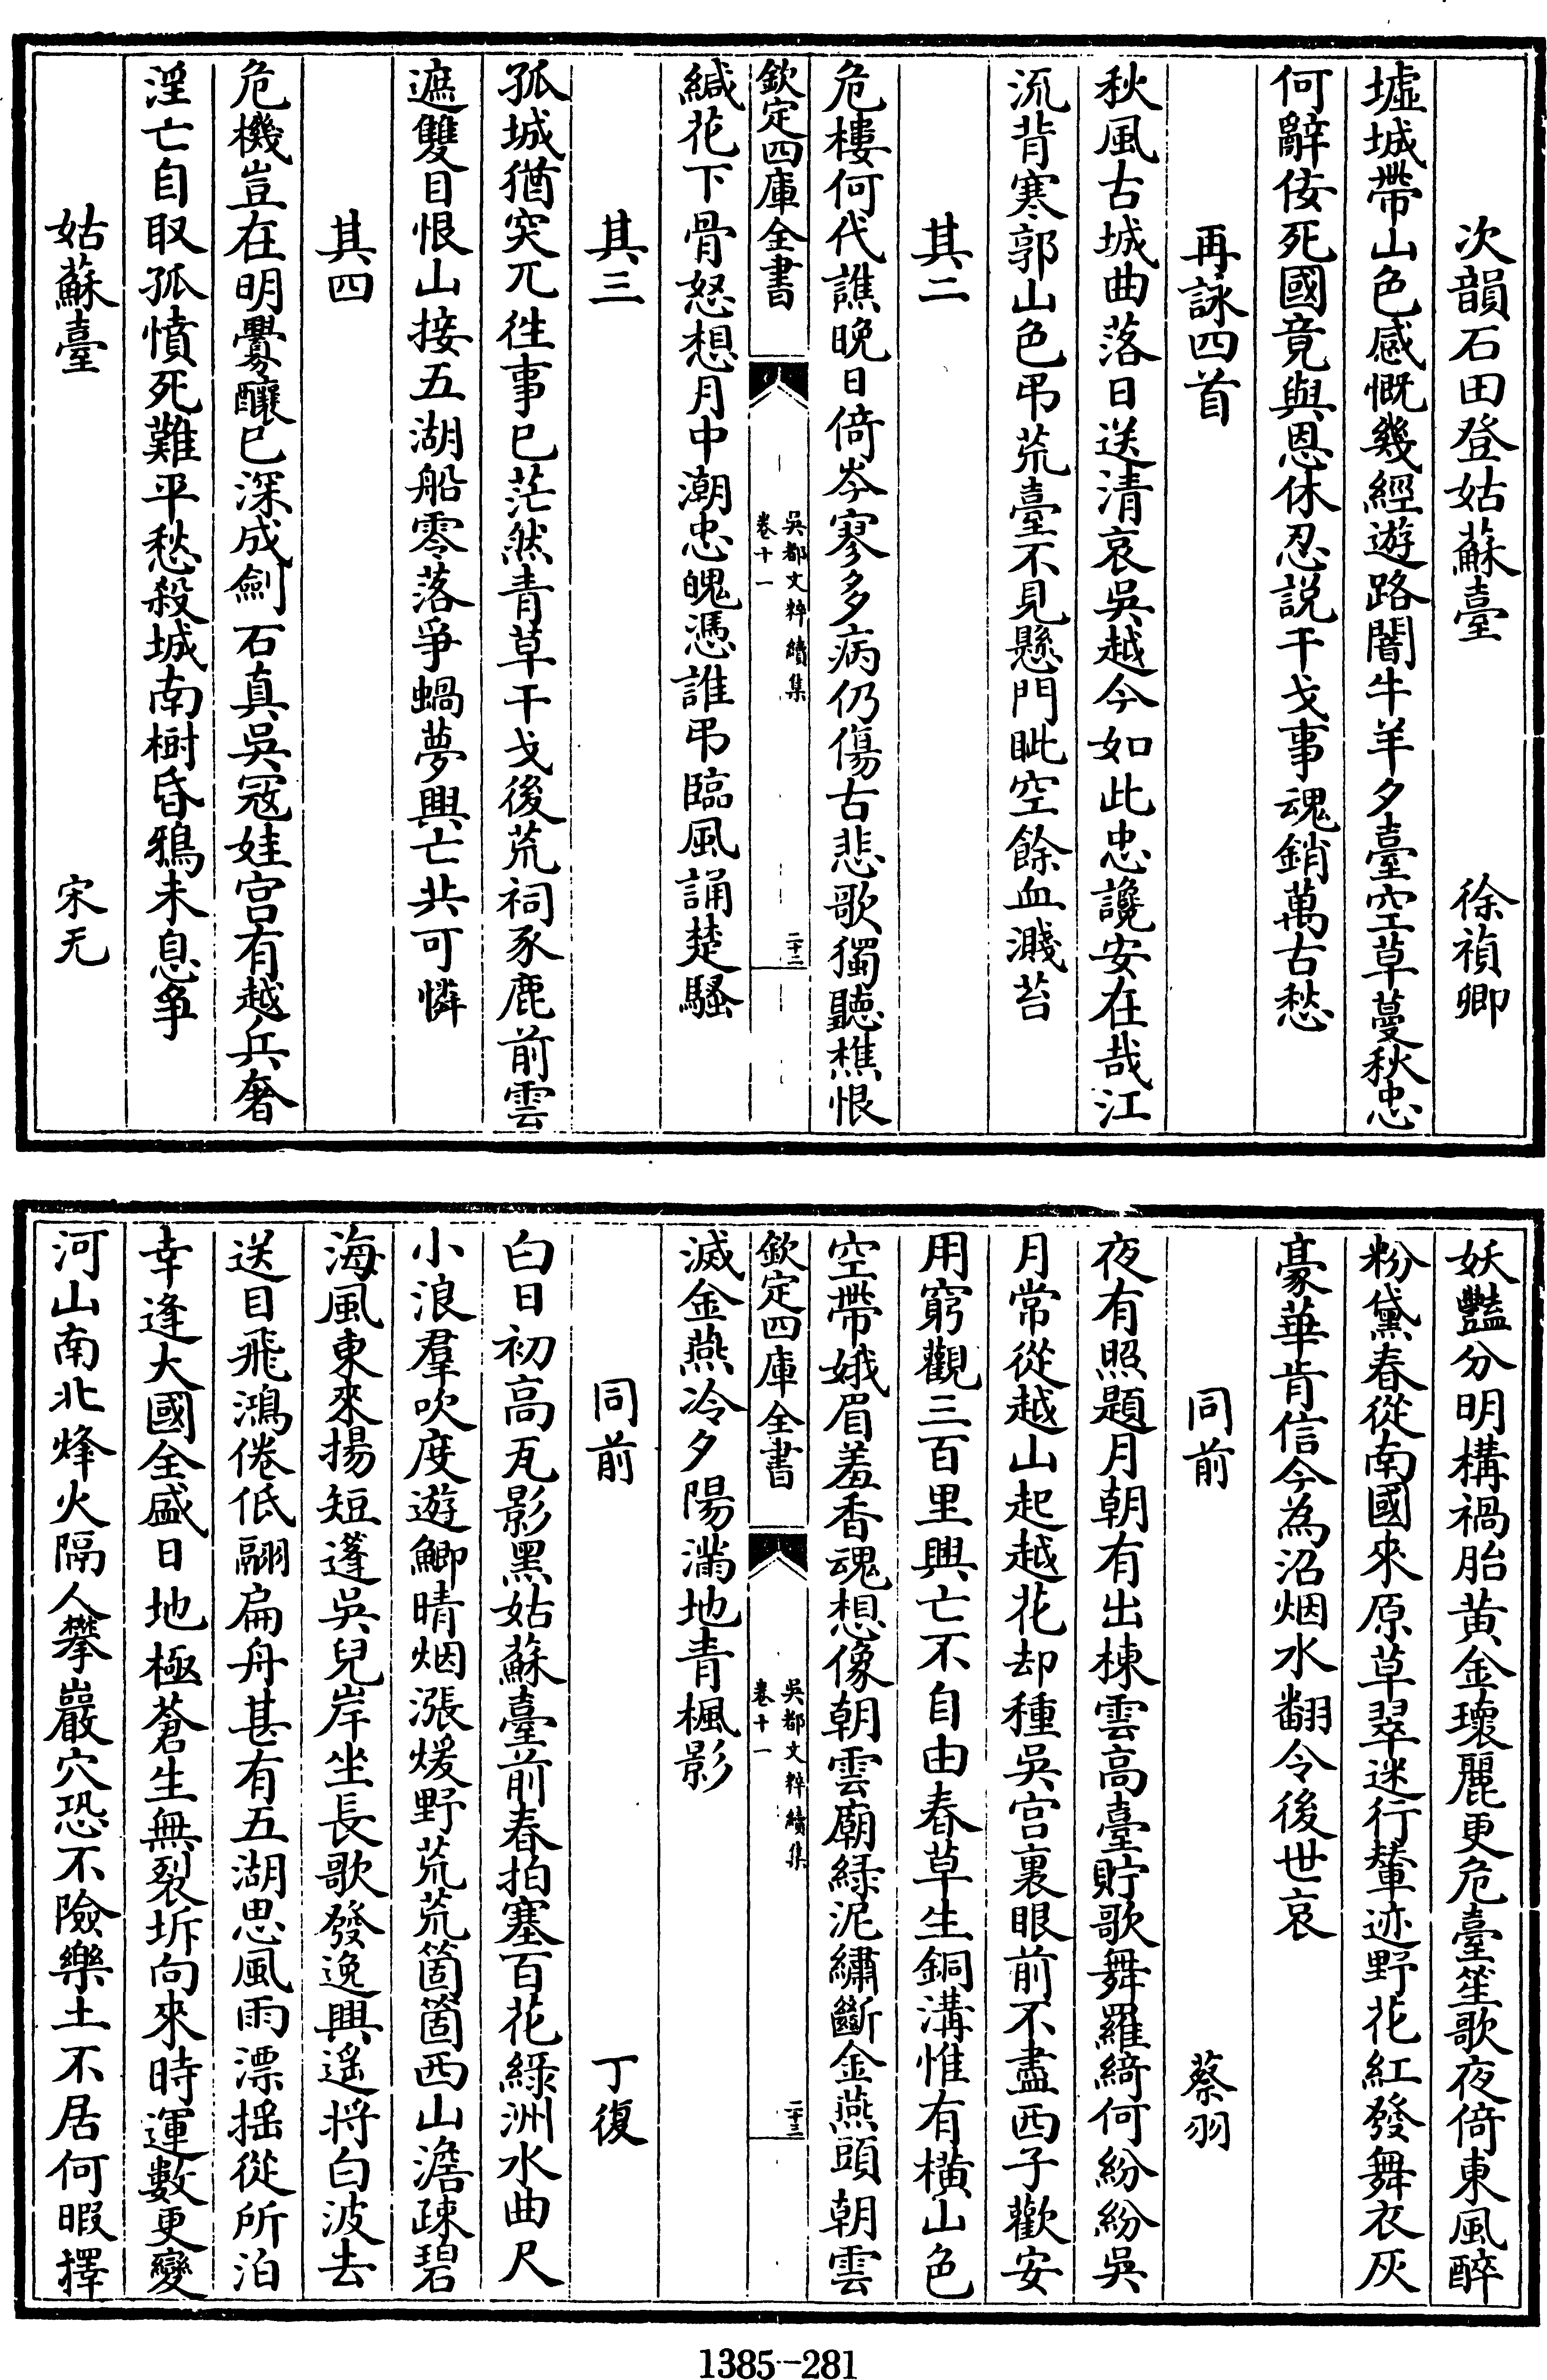 次韻石田登姑蘇臺　徐禎卿
墟城帶山色感慨幾經遊路闇牛羊夕臺空草蔓秋忠
何辭佞死國竟與恩休忍説干戈事魂銷萬古愁
再詠四首
秋風古城曲落日送清哀吳越今如此忠讒安在哉江
流背寒郭山色弔荒臺不見懸門眦空餘血濺苔
其二
危樓何代譙晚日倚岑寥多病仍傷古悲歌獨聽樵恨
欽定四庫全書
吳都文粹續集
卷十一
二十二
緘花下骨怒想月中潮忠魄憑誰弔臨風誦楚騷
其三
孤城猶突兀徃事已茫然青草干戈後荒祠豕鹿前雲
遮雙目恨山接五湖船零落爭蝸夢興亡共可憐
其四
危機豈在明釁釀已深成劍石真吳冦娃宫有越兵奢
淫亡自取孤憤死難平愁殺城南樹昏鴉未息争
姑蘇臺　宋无
妖豔分明構禍胎黄金瓌麗更危臺笙歌夜倚東風醉
粉黛春從南國來原草翠迷行輦迹野花紅發舞衣灰
豪華肯信今為沼烟水翻令後世哀
同前　蔡羽
夜有照題月朝有出棟雲高臺貯歌舞羅綺何紛紛吳
月常從越山起越花却種吳宫裏眼前不盡西子歡安
用窮觀三百里興亡不自由春草生銅溝惟有橫山色
空帶娥眉羞香魂想像朝雲廟緑泥繡斷金燕頭朝雲
欽定四庫全書
吳都文粹續集
卷十一
二十三
滅金燕冷夕陽滿地青楓影
同前　丁復
白日初高瓦影黑姑蘇臺前春拍塞百花緑洲水曲尺
小浪羣吹度遊鯽晴烟漲煖野荒荒箇箇西山澹疎碧
海風東來揚短蓬吳兒岸坐長歌發逸興遥將白波去
送目飛鴻倦低翮扁舟甚有五湖思風雨漂揺從所泊
幸逢大國全盛日地極蒼生無裂坼向來時運數更變
河山南北烽火隔人攀巖穴恐不險樂土不居何暇擇
1385-281